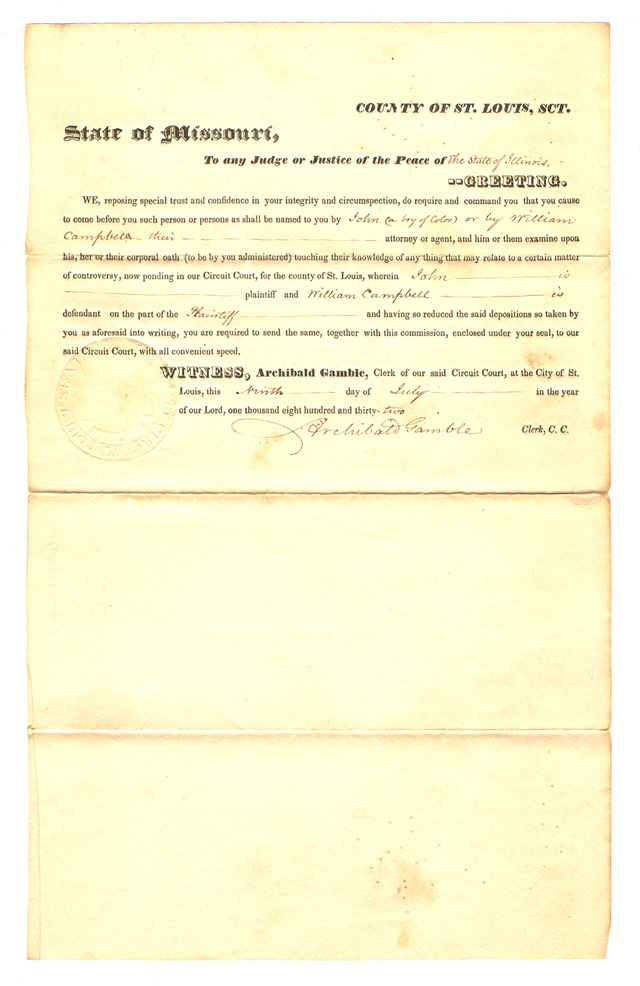 COUNTY OF ST. LOUIS, SCT.
State of Missouri,
To any Judge or Justice of the Peace of the State of Illinois.
--GREETING.
WE, reposing special trust and confidence in your integrity and circumspection, do require and command you that you cause
to come before you such person or persons as shall be named to you by John (a boy of Color) or by William
Campbell - their - attorney or agent, and him or them examine upon
his, her or their corporal oath (to be by you administered) touching their knowledge of any thing that may relate to a certain matter
of controversy, now pending in our Circuit Court, for the county of St. Louis, wherein John - is
plaintiff and William Campbell - is
defendant on the part of the Plaintiff - and having so reduced the said depositions so taken by
you as aforesaid into writing, you are required to send the same, together with this commission, enclosed under your seal, to our
said Circuit Court, with all convenient speed.
WITNESS, Archibald Gamble, Clerk of our said Circuit Court, at the City of St.
Louis, this Ninth - day of July - in the year
of our Lord, one thousand eight hundred and thirty-two.
Archibald Gamble Clerk, C. C.